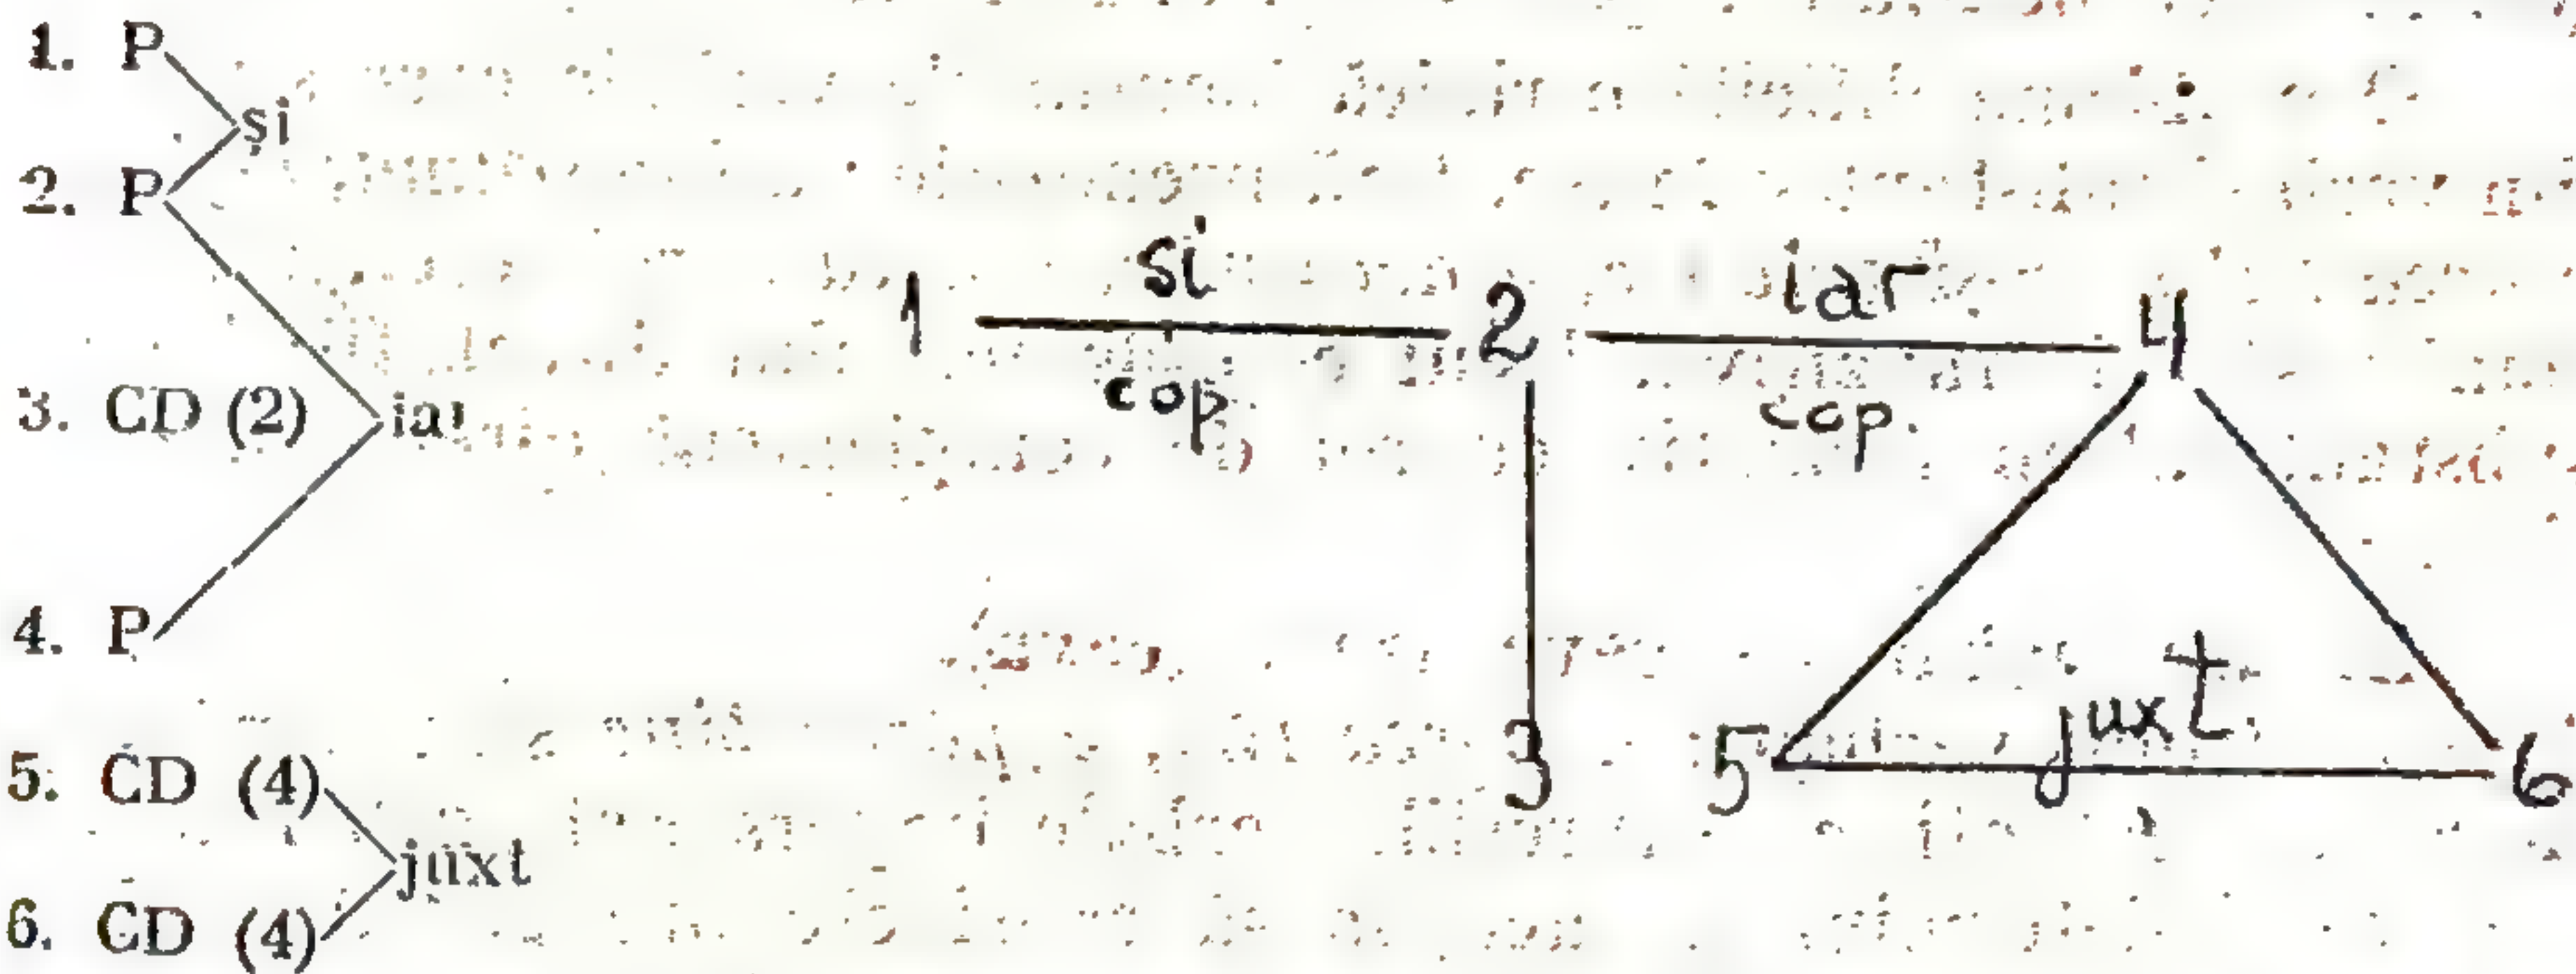 1. P
și
2. P
3. CD (2)
iar
4. P
5. CD (4)
juxt
6. CD (4)
1 si 2 iar 4
cop. cop.
3 5 juxt. 6